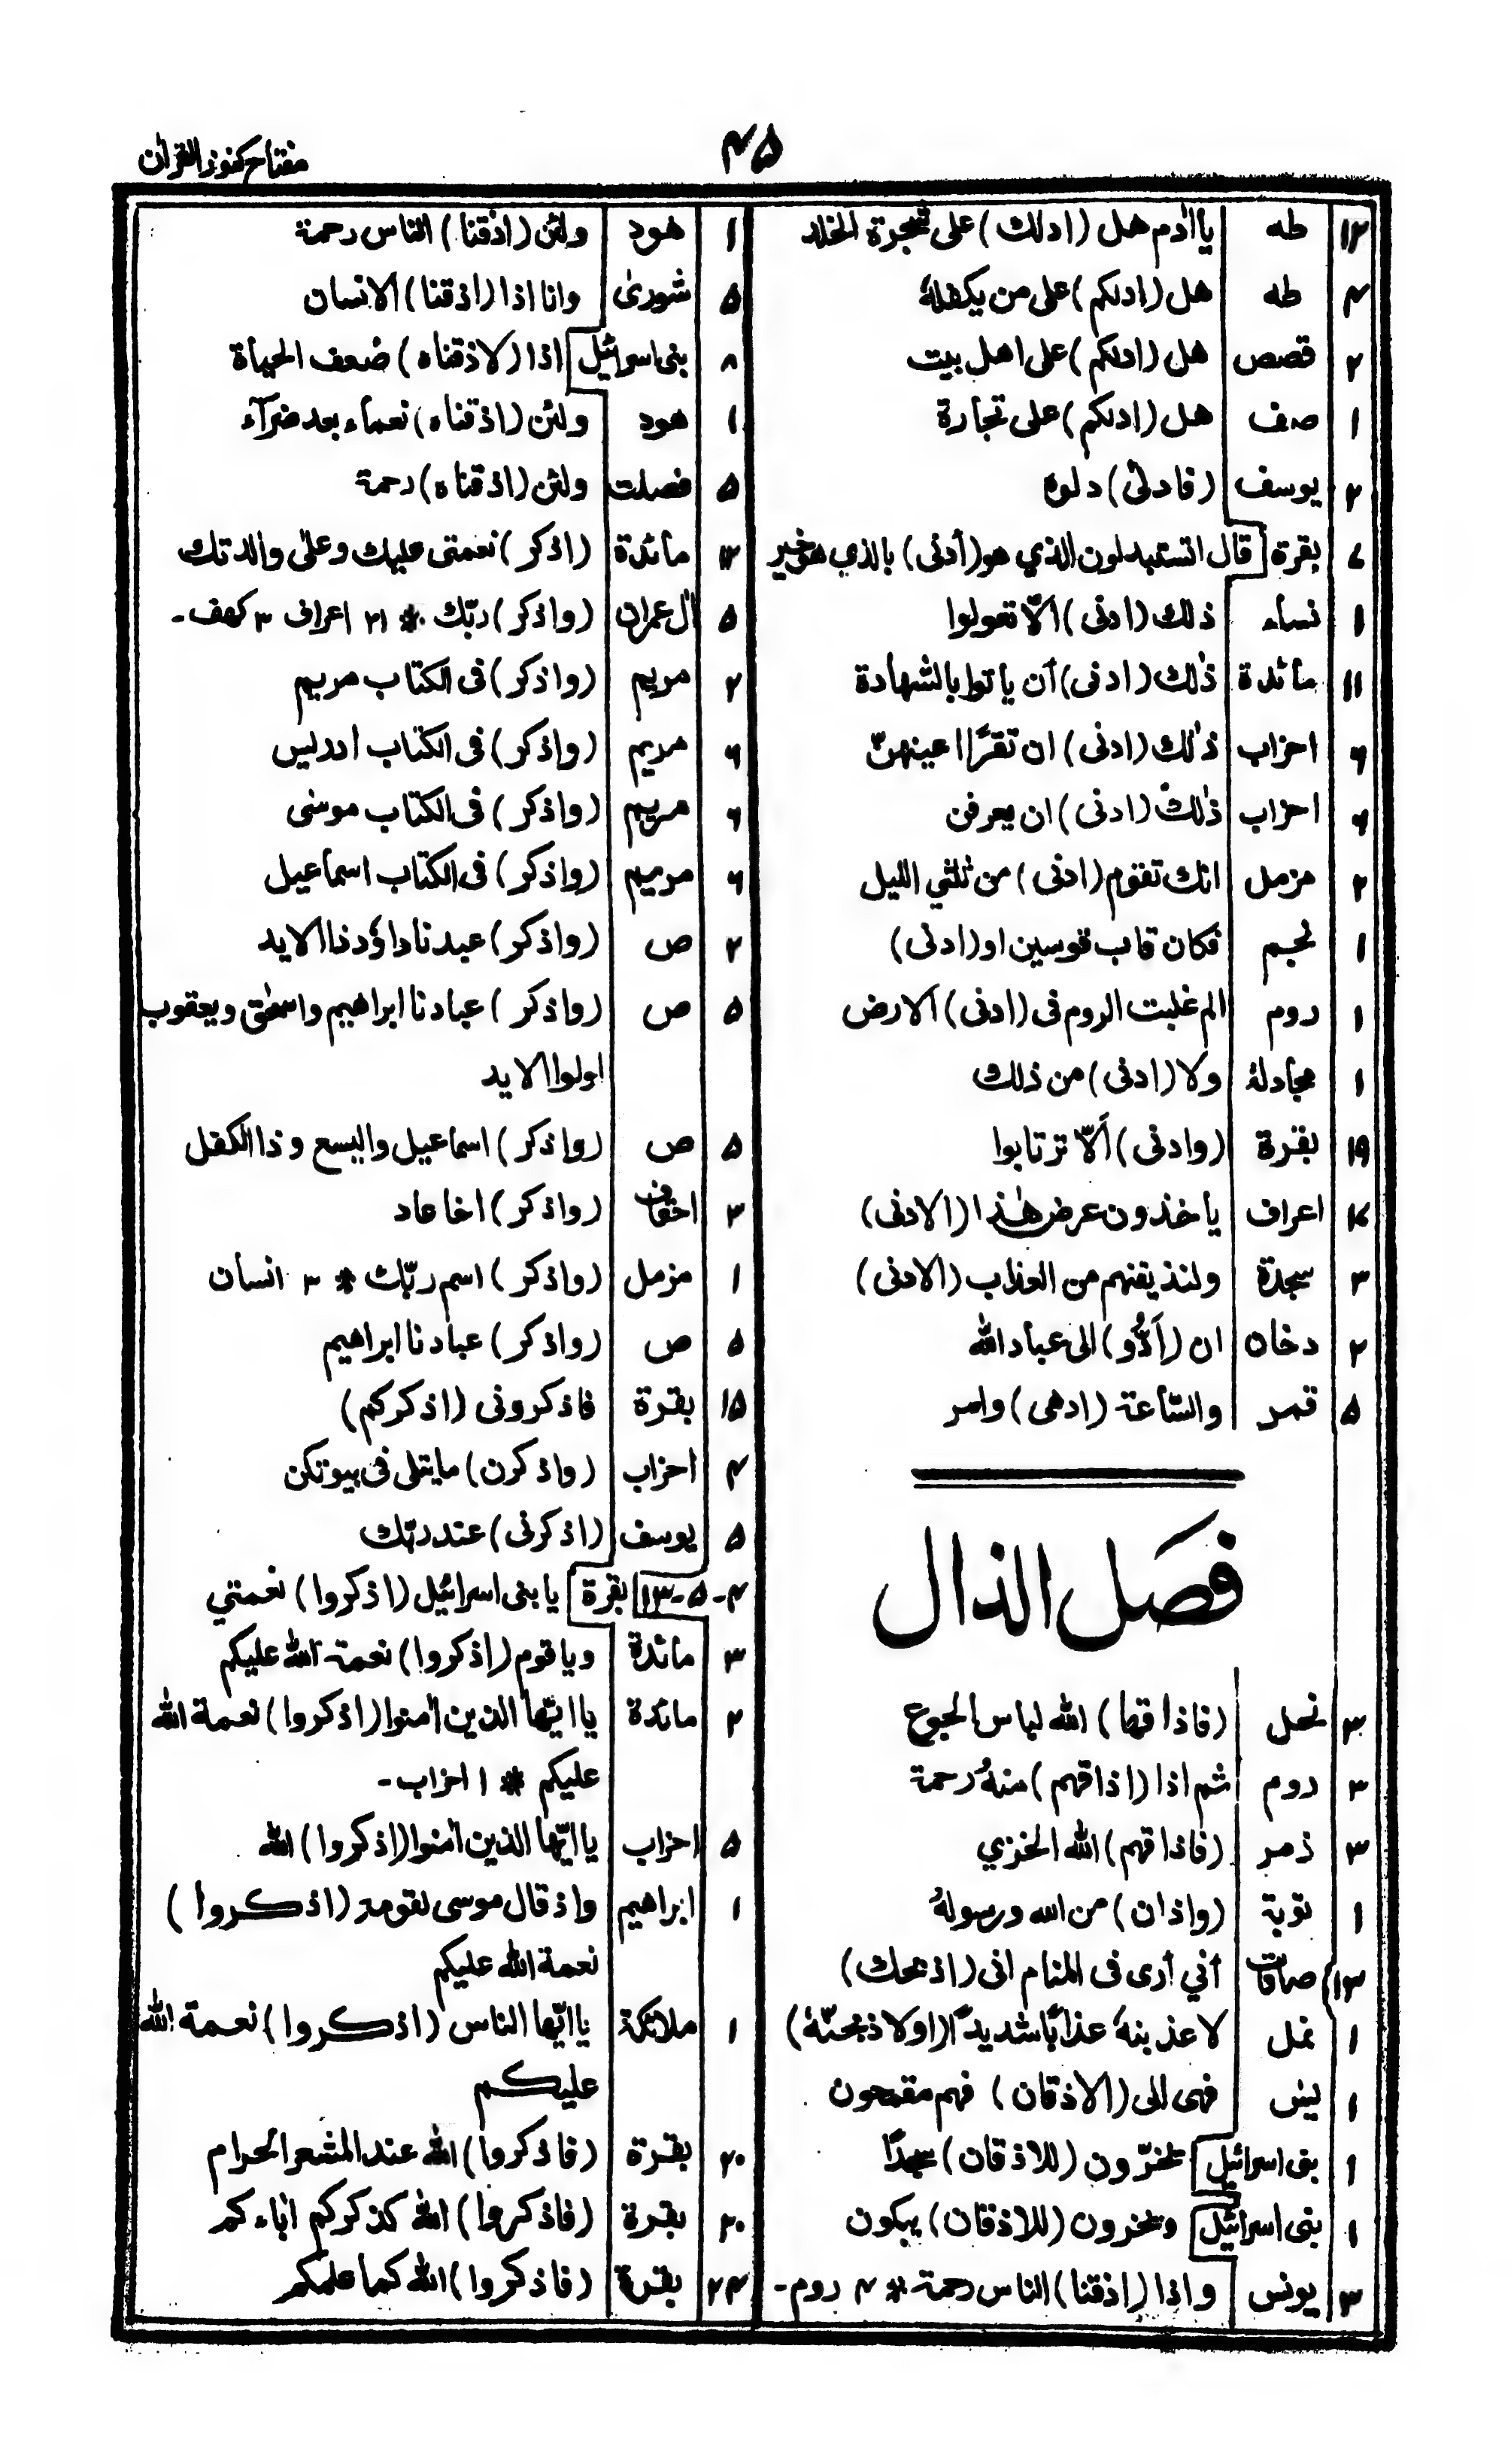 مفتاح كنوز القرآن
۴۵
۱۳ طه يا اٰدم هل (ادلك) على شجرة الخلد
۲ طه هل (ادلكم) على من يكفلهٗ
۲ قصص هل (ادلكم) على اهل بيت
۱ صف هل (ادلكم) على تجارة
۲ يوسف (فادلىٰ) دلوه
۷ بقرة قال اتستبدلون الذي هو (أدنى) بالذي هو خير
۱ نساء ذلك (ادنى) ألّا تعولوا
۱۱ مائدة ذٰلك (ادنى) أن ياتوا بالشهادة
۶ احزاب ذٰلك (ادنى) ان تقرّ اعينهنّ
۶ احزاب ذٰلك (ادنى) ان يعرفن
۲ مزمل انك تقوم (ادنى) من ثلثي الليل
۱ نجم فكان قاب قوسين او (ادنى)
۱ روم الم غلبت الروم فى (ادنى) الارض
۱ مجادلة ولا (ادنى) من ذلك
۱۹ بقرة (وادنى) ألّا ترتابوا
اعراف ياخذون عرض هٰذا (الادنى)
۳ سجدة ولنذيقنهم من العذاب (الادنى)
۲ دخان ان (أدُّو) الى عباد الله
۵ قمر والسّاعة (ادهى) وامر
فصل الذال
۳ نحل (فاذاقها) الله لباس الجوع
۳ روم ثم اذا (اذاقهم) منهُ رحمة
۳ زمر (فاذاقهم) الله الخزي
۱ توبة (واذان) من الله ورسولهٗ
۱۳ صافات أني أرى فى المنام انى (اذبحك)
۱ نمل لاعذبنهٗ عذابًا شديدًا (اولاذبحنّهٗ)
۱ يٰس فهى الى (الاذقان) فهم مقمحون
۱ بنى اسرائيل يخرّون (للاذقان) سجدًا
۱ بنى اسرائيل ويخرون (للاذقان) يبكون
۳ يونس واذا (اذقنا) الناس رحمة * ۴ روم-
۱ هود ولئن (اذقنا) الناس رحمة
۵ شورىٰ وانا اذا (اذقنا) الانسان
۸ بنى اسرائيل اذا (لاذقناه) ضعف الحياة
۱ هود ولئن (اذقناه) نعماء بعد ضرآء
۵ فصلت ولئن (اذقناه) رحمة
مائدة (اذكر) نعمتى عليك وعلىٰ والدتك
۵ اٰل عمران (واذكر) ربّك * ۲۱ اعراف ۳ كهف-
۲ مريم (واذكر) فى الكتاب مريم
۶ مريم (واذكر) فى الكتاب ادريس
۶ مريم (واذكر) فى الكتاب موسٰى
۶ مريم (واذكر) فى الكتاب اسماعيل
۲ ص (واذكر) عبدنا داوٗد ذا الايد
۵ ص (واذكر) عبادنا ابراهيم واسحٰق ويعقوب
اولوا الايد
۵ ص (واذكر) اسماعيل واليسع وذا الكفل
۳ احقاف (واذكر) اخا عاد
۱ مزمل (واذكر) اسم ربّك * ۳ انسان
۵ ص (واذكر) عبادنا ابراهيم
۱۵ بقرة فاذكرونى (اذكركم)
۴ احزاب (واذكرن) ما يتلى فى بيوتكن
۵ يوسف (اذكرنى) عند ربّك
۴-۵-۱۳ بقرة يا بنى اسرائيل (اذكروا) نعمتي
۳ مائدة ويا قوم (اذكروا) نعمة الله عليكم
۲ مائدة يا ايّها الذين اٰمنوا (اذكروا) نعمة الله
عليكم * ۱ احزاب-
۵ احزاب يا ايّها الذين اٰمنوا (اذكروا) الله
۱ ابراهيم واذ قال موسى لقومه (اذكروا)
نعمة الله عليكم
۱ ملائكة يا ايّها الناس (اذكروا) نعمة الله
عليكم
۲۰ بقرة (فاذكروا) الله عند المشعر الحرام
۲۰ بقرة (فاذكروا) الله كذكركم اٰباءكم
۲۴ بقرة (فاذكروا) الله كما علمكم